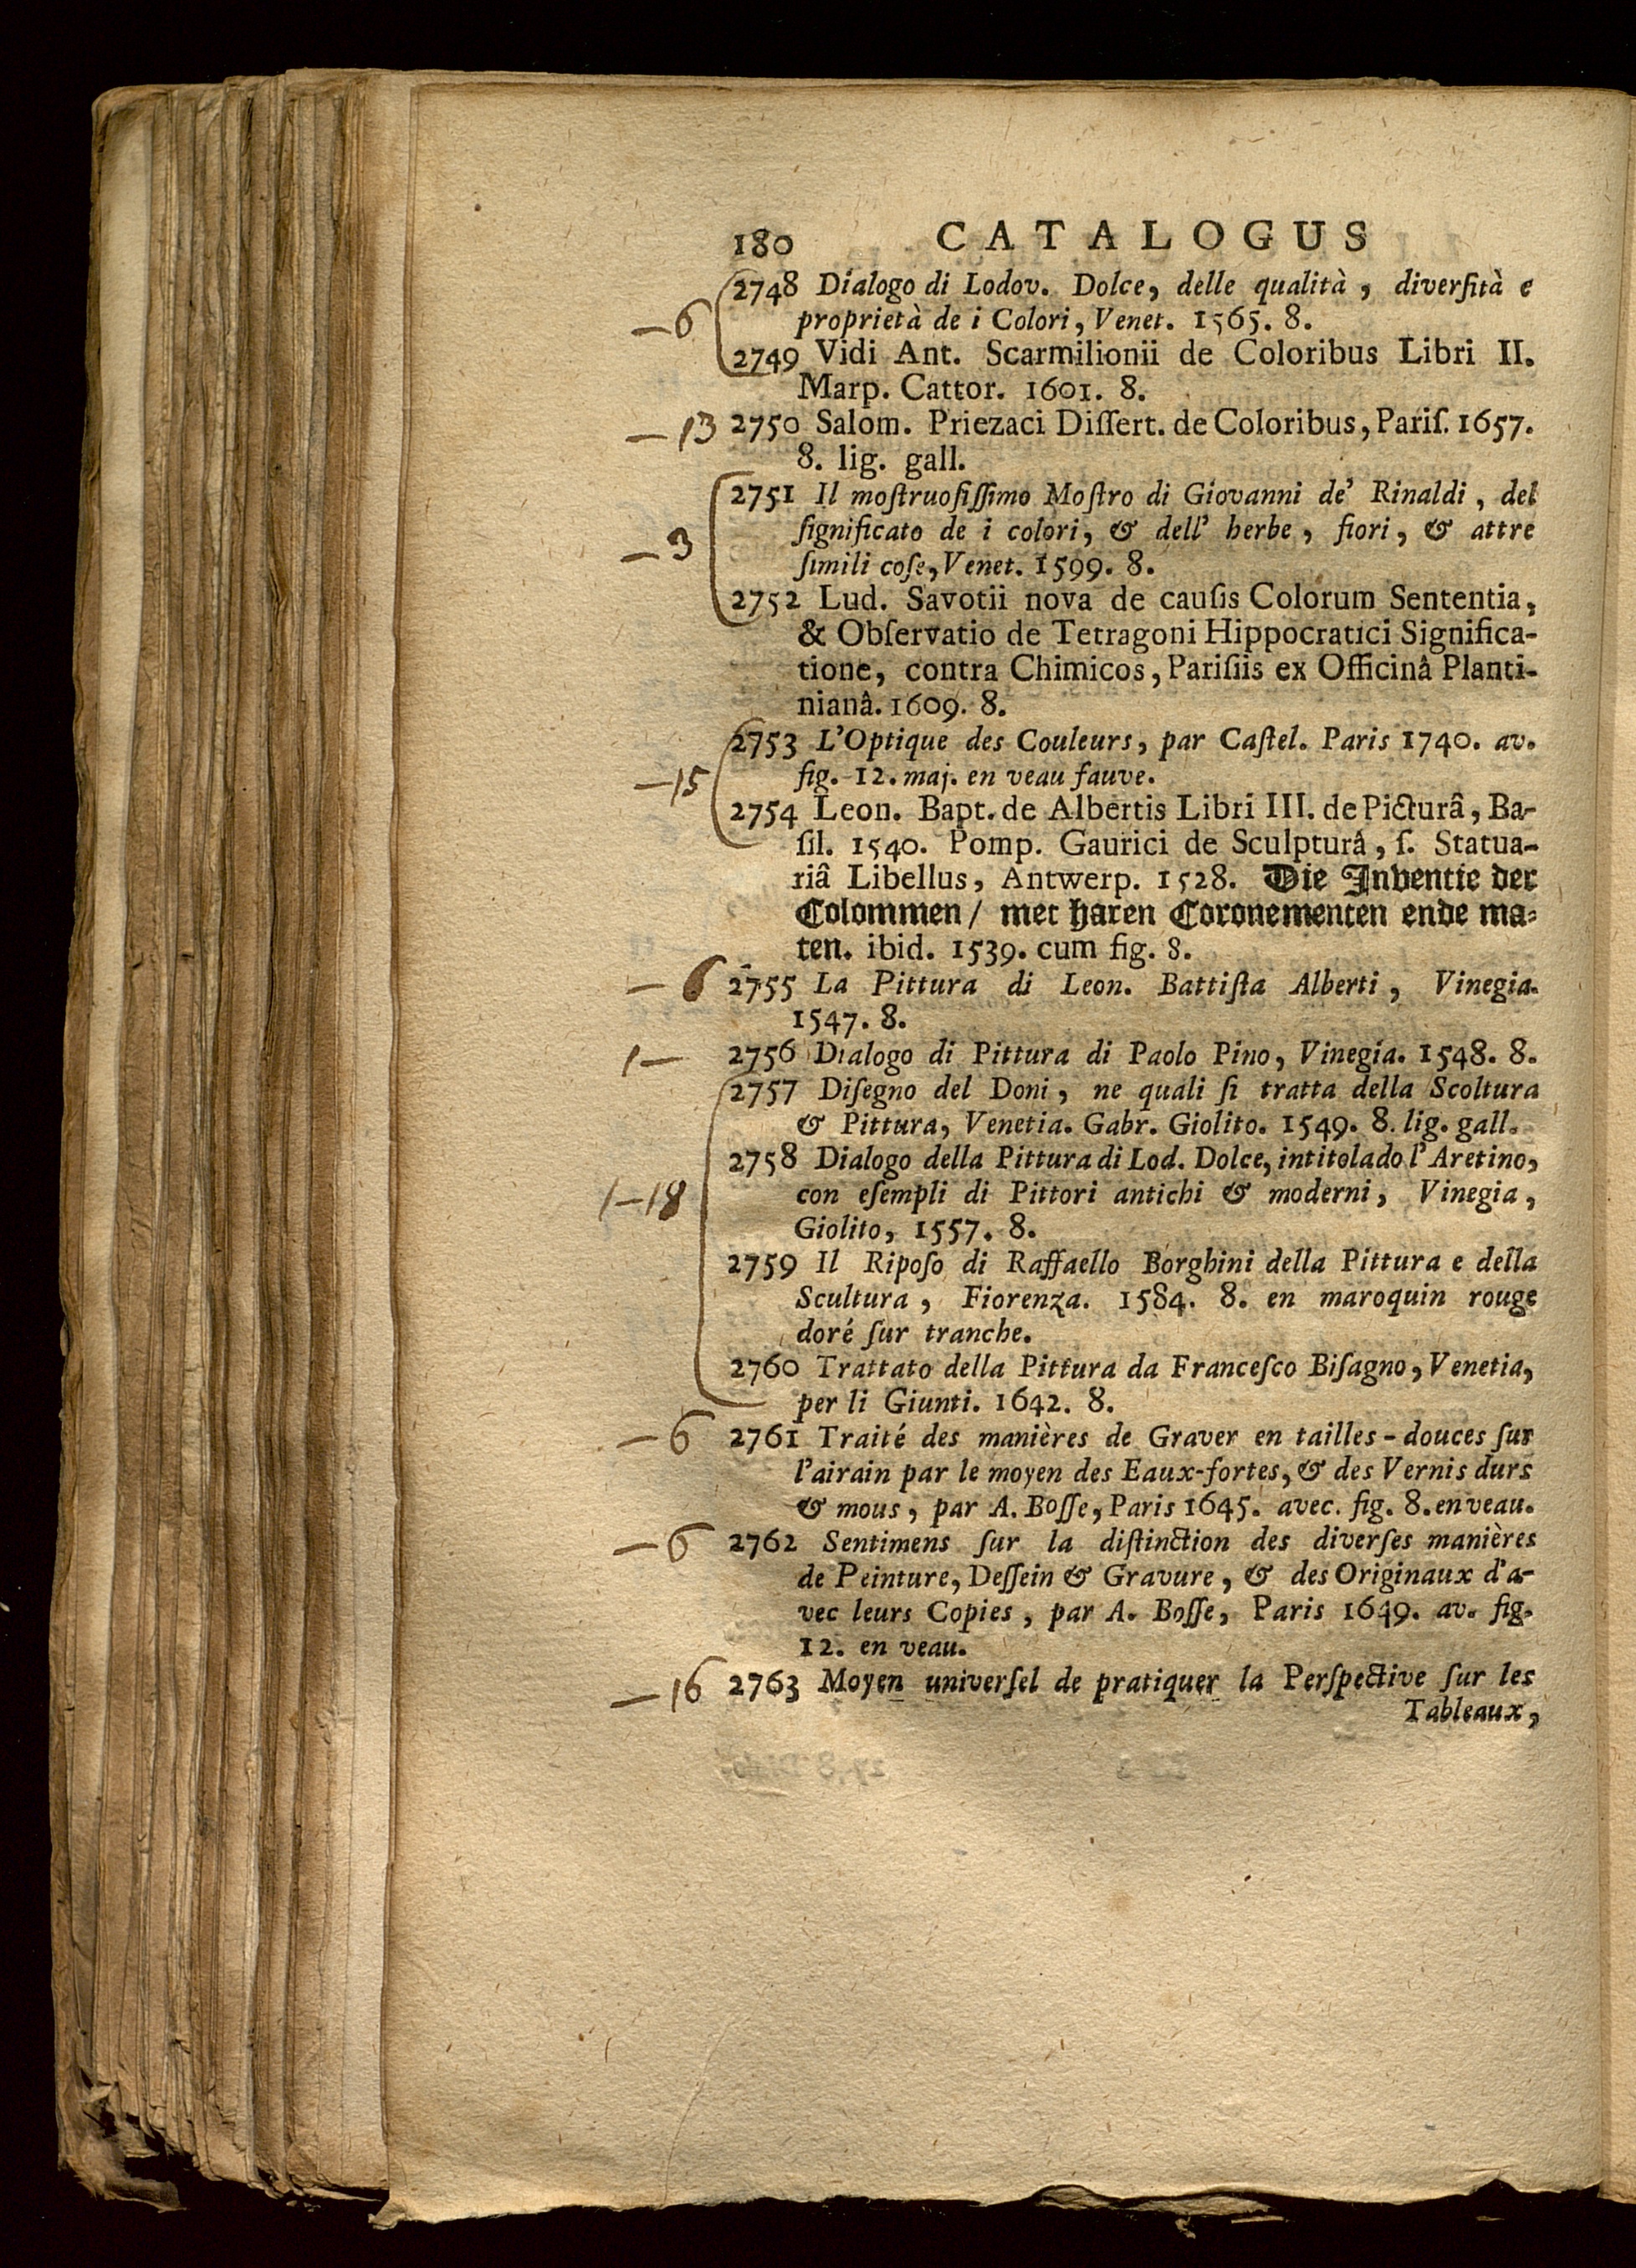 180 CATALOGUS
2748 Dialogo di Lodov. Dolce, delle qualità, diverſità e
—6
proprietà de i Colori, Venet. 1565. 8.
2749 Vidi Ant. Scarmilionii de Coloribus Libri II.
Marp. Cattor. 1601. 8.
—13 2750 Salom. Priezaci Diſſert. de Coloribus, Pariſ. 1657.
8. lig. gall.
2751 Il moſtruoſiſſimo Moſtro di Giovanni de' Rinaldi, del
ſignificato de i colori, & dell' herbe, fiori, & attre
—3
ſimili coſe, Venet. 1599. 8.
2752 Lud. Savotii nova de cauſis Colorum Sententia,
& Obſervatio de Tetragoni Hippocratici Significa-
tione, contra Chimicos, Pariſiis ex Officinâ Planti-
nianâ. 1609. 8.
2753 L'Optique des Couleurs, par Caſtel. Paris 1740. av.
—15
fig. 12. maj. en veau fauve.
2754 Leon. Bapt. de Albertis Libri III. de Picturâ, Ba-
ſil. 1540. Pomp. Gaurici de Sculpturâ, ſ. Statua-
riâ Libellus, Antwerp. 1528. Die Inventie der
Colommen / met haren Coronementen ende ma-
ten. ibid. 1539. cum fig. 8.
—6 2755 La Pittura di Leon. Battiſta Alberti, Vinegia.
1547. 8.
1— 2756 Dialogo di Pittura di Paolo Pino, Vinegia. 1548. 8.
2757 Diſegno del Doni, ne quali ſi tratta della Scoltura
& Pittura, Venetia. Gabr. Giolito. 1549. 8. lig. gall.
2758 Dialogo della Pittura di Lod. Dolce, intitolado l'Aretino,
1—18
con eſempli di Pittori antichi & moderni, Vinegia,
Giolito, 1557. 8.
2759 Il Ripoſo di Raffaello Borghini della Pittura e della
Scultura, Fiorenza. 1584. 8. en maroquin rouge
doré ſur tranche.
2760 Trattato della Pittura da Franceſco Biſagno, Venetia,
per li Giunti. 1642. 8.
—6 2761 Traité des manières de Graver en tailles-douces ſur
l'airain par le moyen des Eaux-fortes, & des Vernis durs
& mous, par A. Boſſe, Paris 1645. avec. fig. 8. en veau.
—6 2762 Sentimens ſur la diſtinction des diverſes manières
de Peinture, Deſſein & Gravure, & des Originaux d'a-
vec leurs Copies, par A. Boſſe, Paris 1649. av. fig.
12. en veau.
—16 2763 Moyen univerſel de pratiquer la Perſpective ſur les
Tableaux,